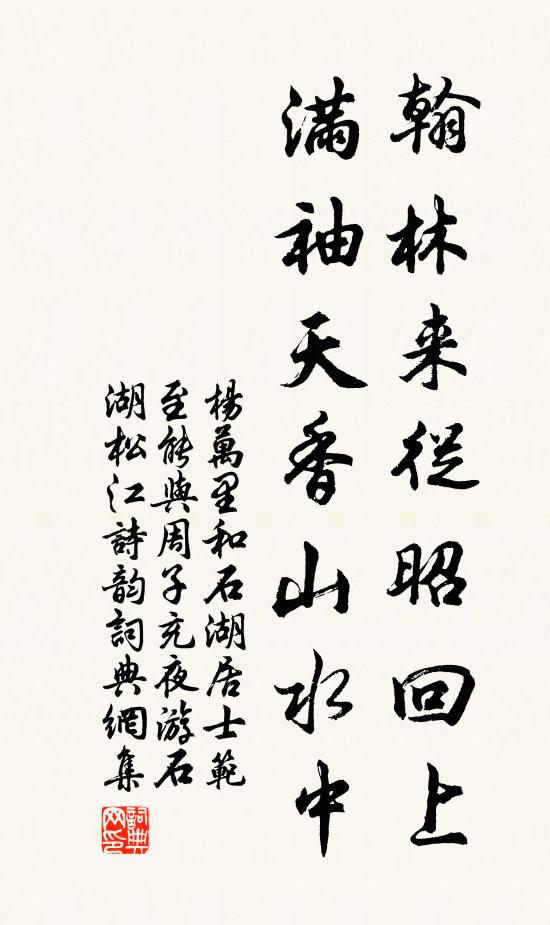 翰林来從昭回上
滿袖天香山水中
楊萬里和石湖居士範
至能與周子充夜游石
湖松江詩韵詞典網集
詞典
网印